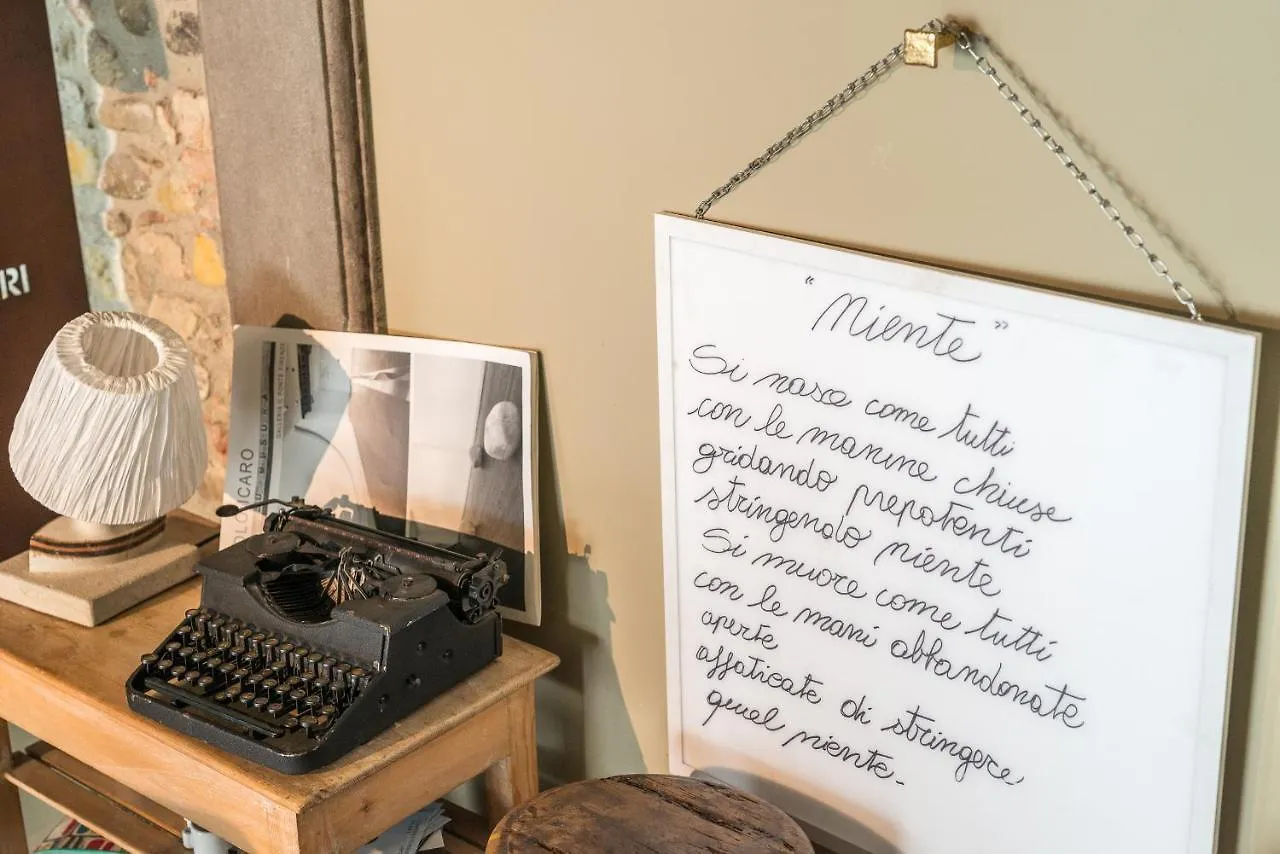 RI
"Niente"
Si nasce come tutti
con le manine chiuse
gridando prepotenti
stringendo niente
Si muore come tutti
con le mani abbandonate
aperte
affaticate di stringere
quel niente-